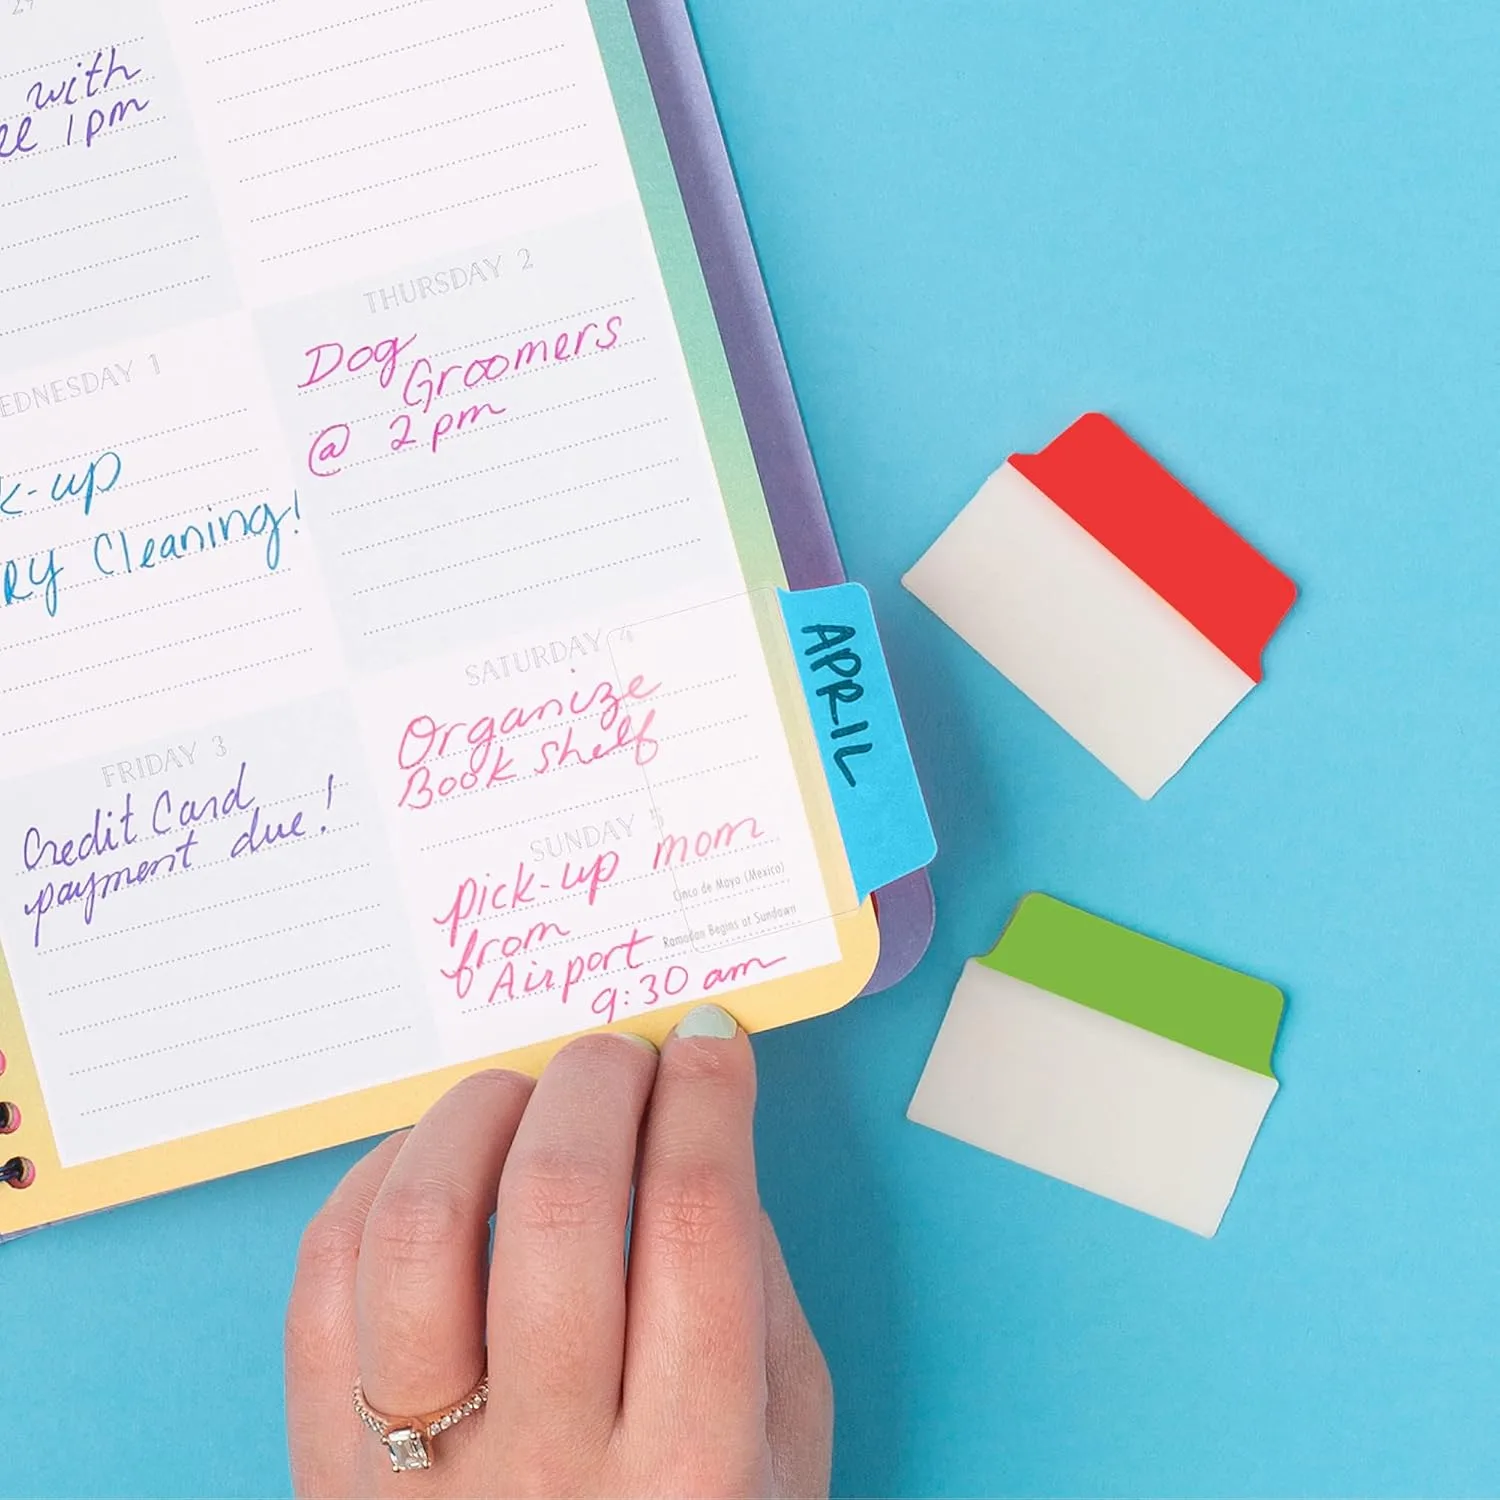 with
1pm
THURSDAY 2
Dog
Groomers
@ 2pm
WEDNESDAY 1
k-up
RY Cleaning!
SATURDAY 4
Organize
Book shelf
APRIL
FRIDAY 3
Credit Card
payment due!
SUNDAY 5
pick-up mom
from
Airport
9:30 am
Cinco de Mayo (Mexico)
Ramadan Begins at Sundown